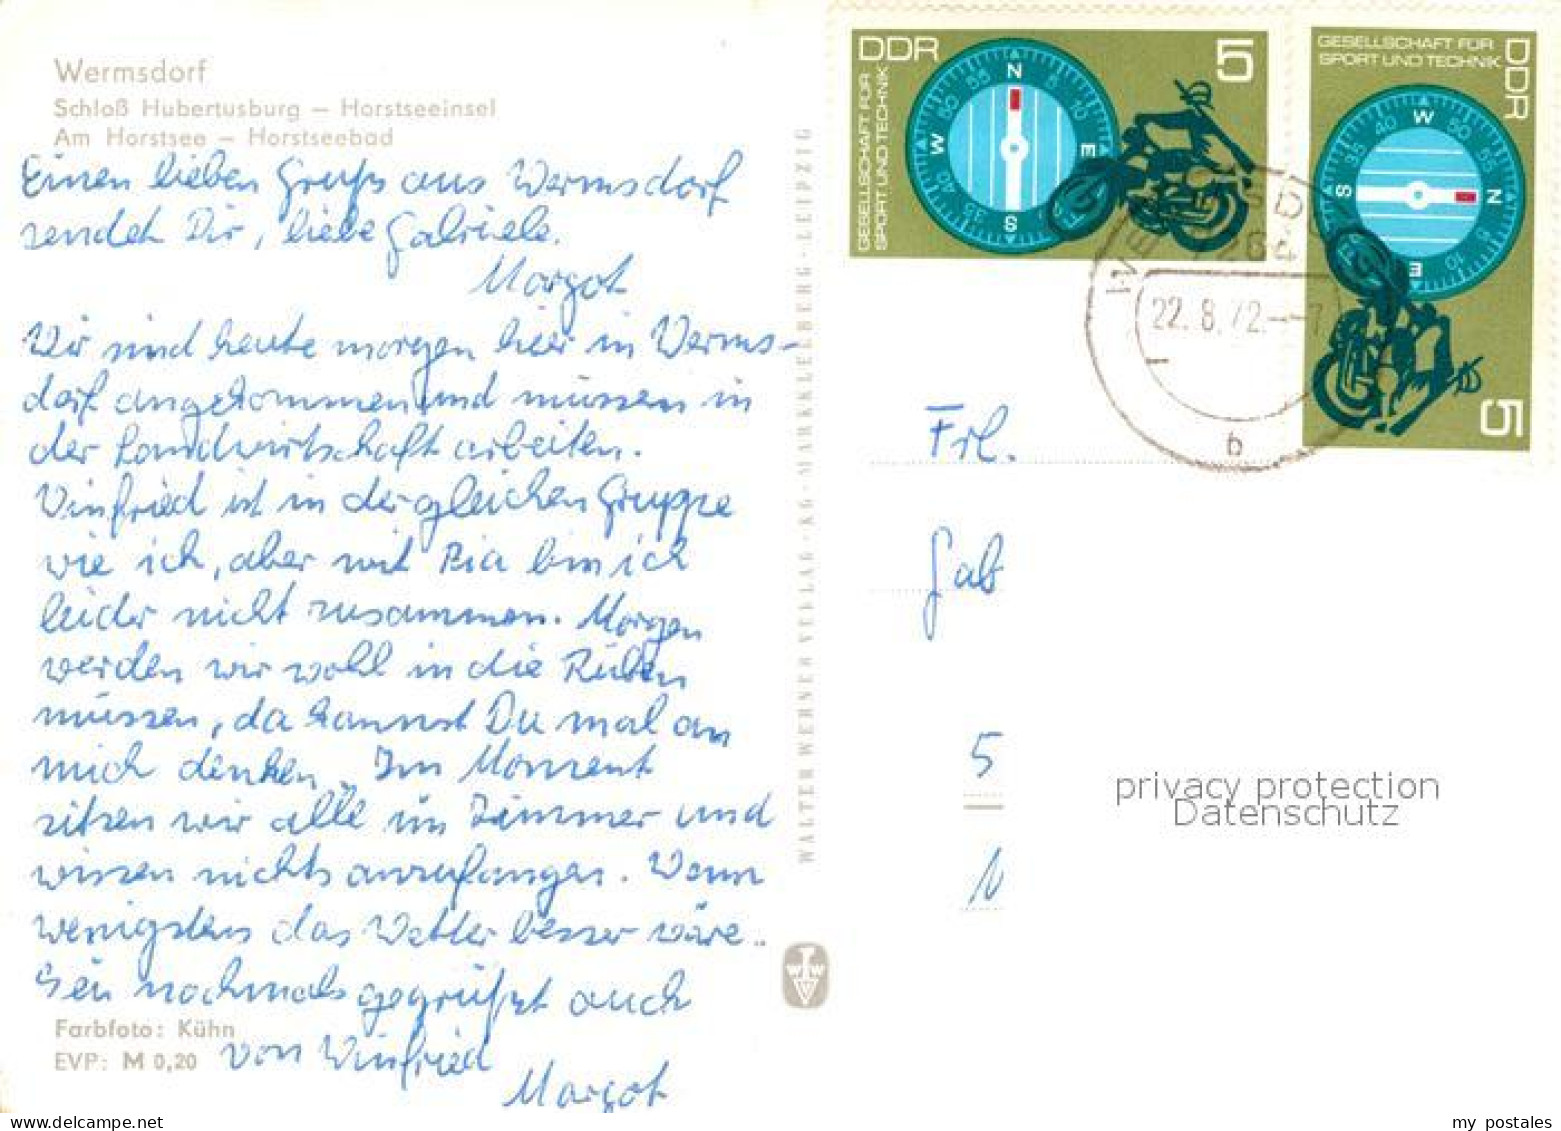 Wermsdorf
Schloß Hubertusburg – Horstseeinsel
Am Horstsee – Horstseebad
Einen lieben Gruß aus Wermsdorf
sendet Dir, liebe Gabriele.
Margot
Wir sind heute morgen hier in Werms-
dorf angekommen und müssen in
der Landwirtschaft arbeiten.
Winfried ist in der gleichen Gruppe
wie ich, aber mit Ria bin ich
leider nicht zusammen. Morgen
werden wir wohl in die Rüben
müssen, da kannst Du mal an
mich denken. Im Moment
sitzen wir alle im Zimmer und
wissen nichts anzufangen. Wenn
wenigstens das Wetter besser wäre..
Sei nochmals gegrüßt auch
von Winfried
Margot
Farbfoto: Kühn
EVP: M 0,20
WALTER WERNER VERLAG · KG · MARKKLEEBERG - LEIPZIG
WWV
DDR
5
GESELLSCHAFT FÜR
SPORT UND TECHNIK
N
W
E
S
GESELLSCHAFT FÜR
SPORT UND TECHNIK
DDR
W
S
N
E
5
WERMSDORF
7264
22.8.72.--7
b
Frl.
Gab
5
privacy protection
Datenschutz
my postales